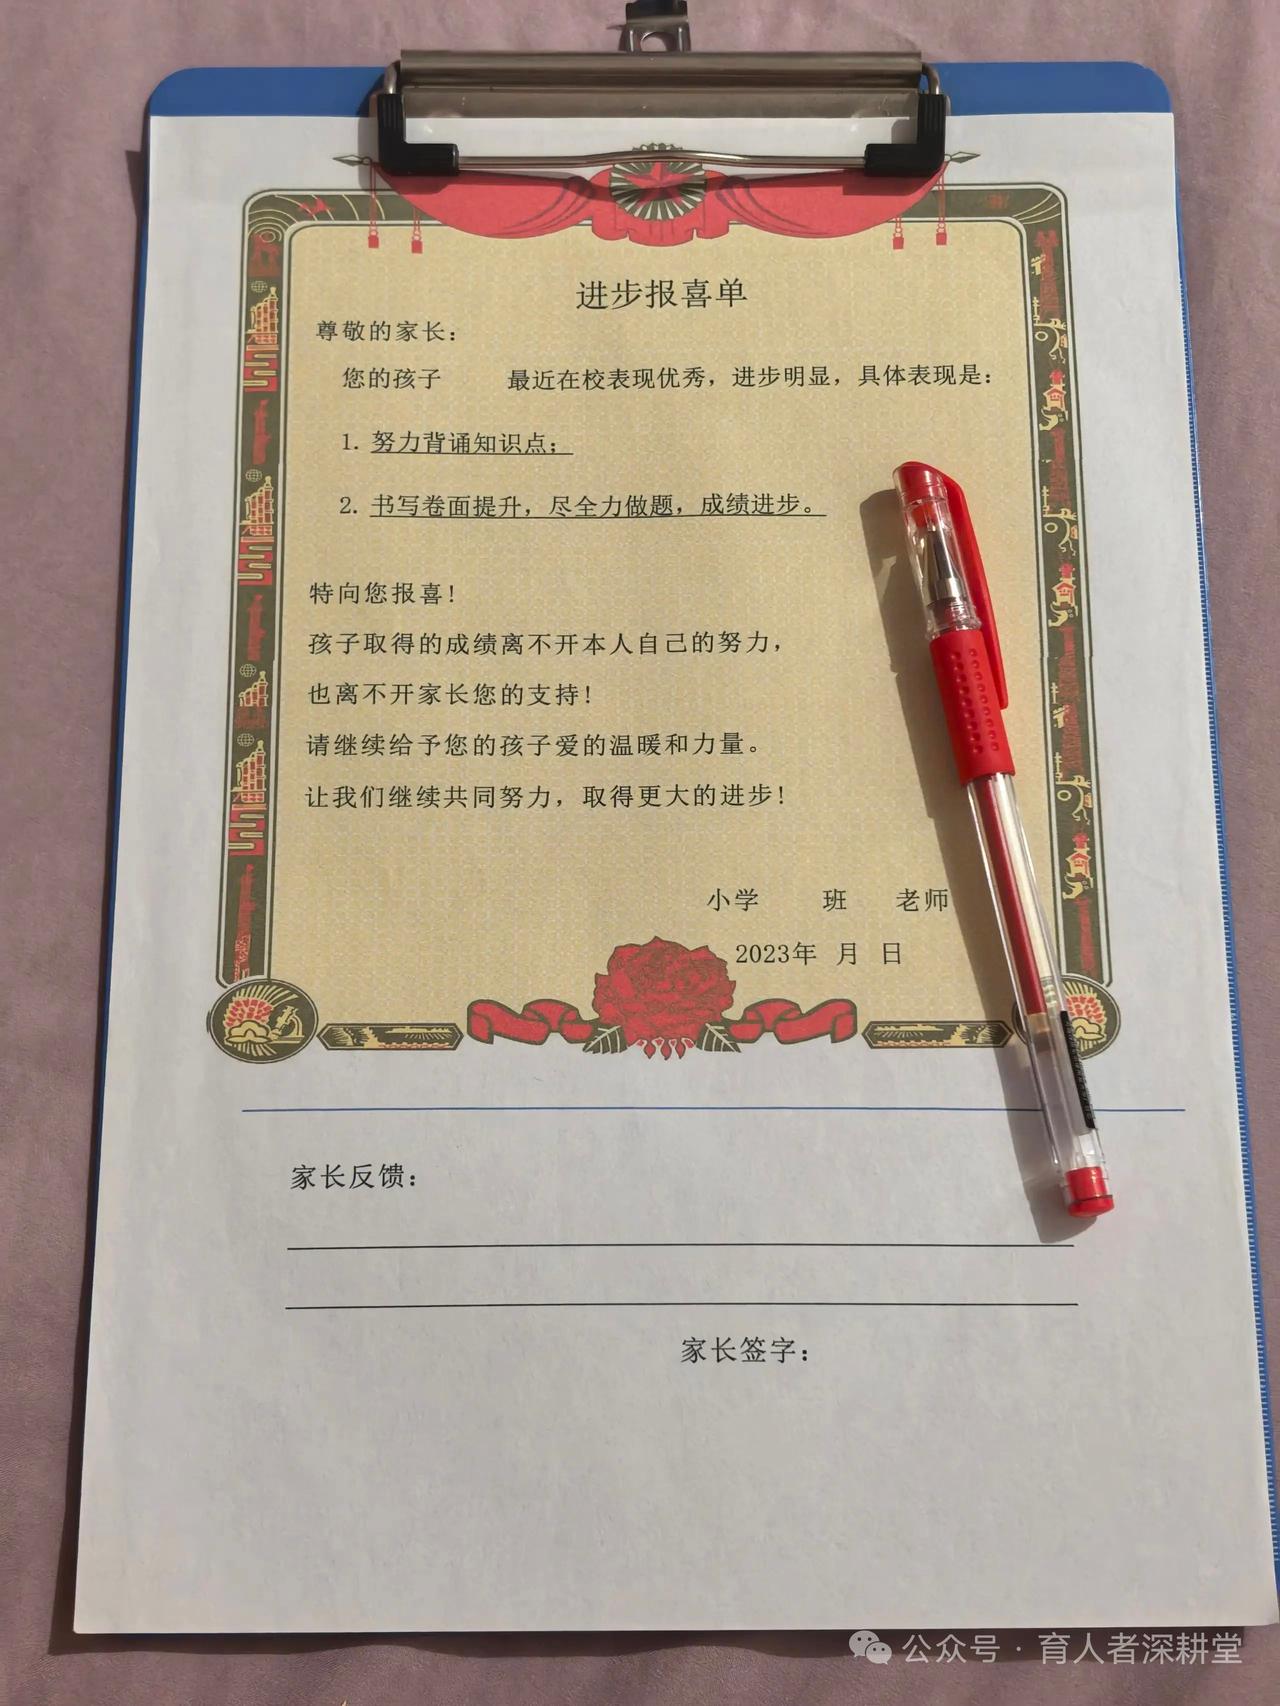 进步报喜单
尊敬的家长：
您的孩子 最近在校表现优秀，进步明显，具体表现是：
1. 努力背诵知识点；
2. 书写卷面提升，尽全力做题，成绩进步。
特向您报喜！
孩子取得的成绩离不开本人自己的努力，
也离不开家长您的支持！
请继续给予您的孩子爱的温暖和力量。
让我们继续共同努力，取得更大的进步！
小学 班 老师
2023年 月 日
家长反馈：
家长签字：
公众号·育人者深耕堂